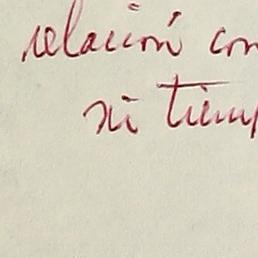 relación con
si tiemp